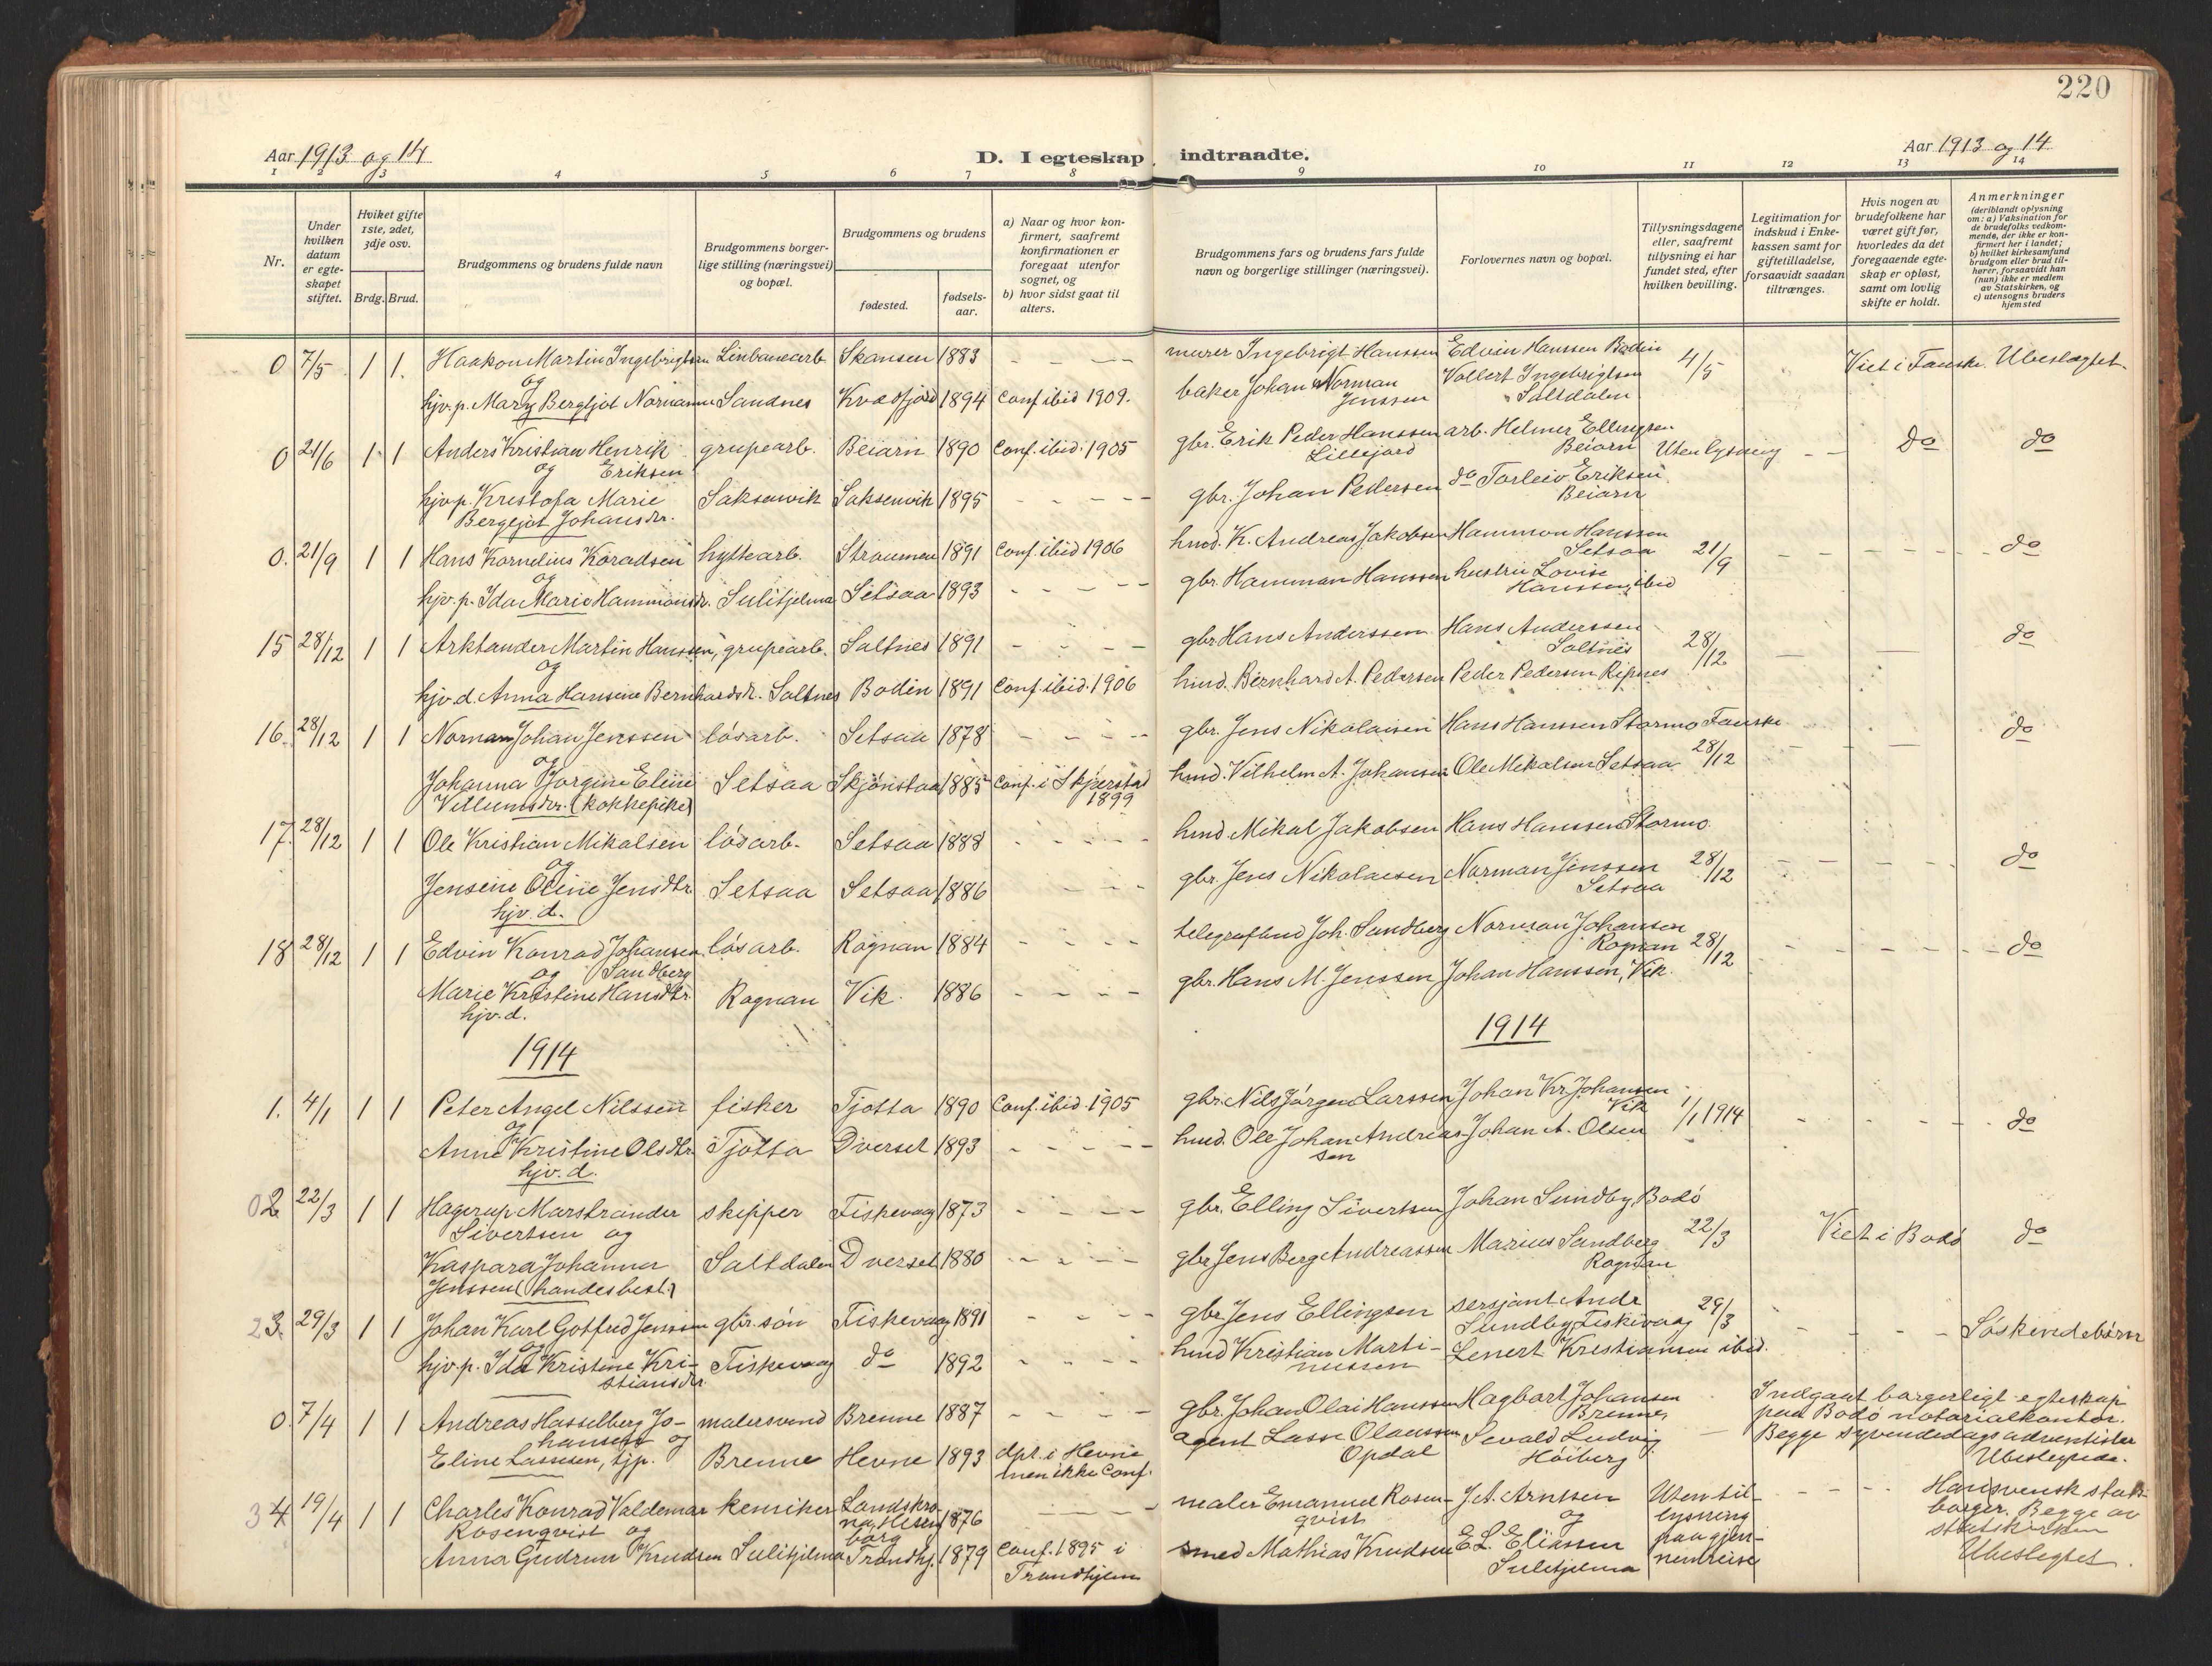 220
Aar 1913 og 14
D. I egteskap indtraadte.
Aar 1913 og 14
1 2 3 4 5 6 7 8 9 10 11 12 13 14
Nr.
Under hvilken datum er egteskapet stiftet.
Hvilket gifte 1ste, 2det, 3dje osv.
Brdg. Brud.
Brudgommens og brudens fulde navn
Brudgommens borgerlige stilling (næringsvei) og bopæl.
Brudgommens og brudens
fødested.
fødselsaar.
a) Naar og hvor konfirmert, saafremt konfirmationen er foregaat utenfor sognet, og
b) hvor sidst gaat til alters.
Brudgommens fars og brudens fars fulde navn og borgerlige stillinger (næringsvei).
Forlovernes navn og bopæl.
Tillysningsdagene eller, saafremt tillysning ei har fundet sted, efter hvilken bevilling.
Legitimation for indskud i Enkekassen samt for giftetilladelse, forsaavidt saadan tiltrænges.
Hvis nogen av brudefolkene har været gift før, hvorledes da det foregaaende egteskap er opløst, samt om lovlig skifte er holdt.
Anmerkninger
(deriblandt oplysning om: a) Vaksination for de brudefolks vedkommende, der ikke er konfirmert her i landet;
b) hvilket kirkesamfund brudgom eller brud tilhører, forsaavidt han (hun) ikke er medlem av Statskirken, og
c) utensogns bruders hjemsted
0 7/5 1 1. Haakon Martin Ingebrigtsen Linbanearb Skansen 1883 - - - murer Ingebrigt Hanssen Edvin Hanssen Bodin 4/5 Viet i Fauske. Ubeslægtet.
og
hjv. p. Mary Bergljot Norman Sandnes Kvædfjord 1894 Conf ibid 1909. baker Johan Norman Jenssen Vollert Ingebrigtsen Saltdalen
0 21/6 1 1 Anders Kristian Henrik Eriksen grupearb. Beiarn 1890 Conf. ibid. 1905 gbr. Erik Peder Hanssen Lillejord arb. Helmer Ellingsen Beiarn Uten lysning - - do do
og
hjv. p. Kristofa Marie Bergljot Johansdr. Saksenvik Saksenvik 1895 - - - - gbr. Johan Pedersen do Torleiv Eriksen Beiarn
0. 21/9 1 1 Hans Kornelius Koradsen hyttearb. Straumen 1891 Conf ibid 1906 hmd. K. Andreas Jakobsen Hammon Hanssen Setsaa 21/9 - - - - do
og
hjv. p. Ida Marie Hammonsdr. Sulitjelma Setsaa 1893 - - - - gbr. Hammon Hanssen hustru Lovise Hanssen, ibid
15 28/12 1 1 Arktander Martin Hanssen, grupearb. Saltnes 1891 - - - - gbr Hans Anderssen Hans Anderssen Saltnes 28/12 - - do
og
hjv. d. Anna Hansine Bernhardsdr. Saltnes Bodin 1891 Conf. ibid. 1906 hmd. Bernhard A. Pedersen Peder Pedersen Ripnes
16. 28/12 1 1 Norman Johan Jenssen løsarb. Setsaa 1878 - - - - gbr. Jens Nikolaisen Hans Hanssen Stormo Fauske 28/12 - - - do
og
Johanna Jørgine Eline Villumsdr. (kokkepike) Setsaa Skjønstaa 1885 Conf. i Skjerstad 1899 hmd. Vilhelm A. Johansen Ole Mikalsen Setsaa
17. 28/12 1 1 Ole Kristian Mikalsen løsarb. Setsaa 1888 - - - - hmd Mikal Jakobsen Hans Hanssen Stormo 28/12 - - - do
og
Jensine Oline Jensdtr hjv. d. Setsaa Setsaa 1886 - - - gbr. Jens Nikolaisen Norman Jenssen Setsaa
18 28/12 1 1 Edvin Konrad Johansen Sandberg løsarb. Rognan 1884 - - - - telegrafbud Joh. Sandberg Norman Johansen Rognan 28/12 - - - - do
og
Marie Kristine Hansdtr hjv. d. Rognan Vik. 1886 - - - - gbr. Hans M. Jenssen Johan Hanssen, Vik.
1914
1914
1. 4/1 1 1 Peter Angel Nilssen fisker Tjøtta 1890 Conf. ibid. 1905 gbr. Nils Jørgen Larssen Johan Kr. Johansen Vik 1/1 1914 - - - - do
og
Anna Kristine Olsdtr hjv. d. Tjøtta Dverset 1893 - - - - hmd. Ole Johan Andreassen Johan A. Olsen
02 22/3 1 1 Hagerup Marstrander Sivertsen og skipper Fiskevaag 1873 - - - - gbr. Elling Sivertsen Johan Sundby, Bodø 22/3 Viet i Bodø do
Kaspara Johanna Jenssen (handesbest.) Saltdalen Dverset 1880 - - - - gbr. Jens Berg Andreassen Marius Sandberg Rognan
23. 29/3 1 1 Johan Karl Gotfred Jenssen gbr. søn Fiskevaag 1891 - - - gbr. Jens Ellingsen sersjant Andr Sundby, Fiskevaag 29/3 - - - - Søskendebørn
og
hjv. p. Ida Kristine Kristiansdr Fiskevaag do 1892 - - - - hmd Kristian Martinussen Lenert Kristiansen ibid.
0. 7/4 1 1 Andreas Hasselberg Johansen og malersvend Brenne 1887 - - - - gbr. Johan Olai Hanssen Hagbart Johansen Brenne, Indgaat borgerligt egteskap paa Bodø notarialkontor.
Eline Lassesen, tjp. Brenne Hevne 1893 dpt. i Hevne men ikke Conf. agent Lasse Olaussen Opdal Sevald Ludvig Høiberg - Begge syvendedagsadventister Ubeslegtede.
34 19/4 1 1 Charles Konrad Valdemar Rosenqvist og kemiker Landskrona, 1876 - - - maler Emanuel Rosenqvist J. A. Arntsen og Uten tillysning paa gjennemreise - - - - Han svensk statsborger. Begge av statskirken Ubeslegtet.
Anna Gudrun Knudsen Sulitjelma Trondhj. 1879 Conf. 1895 i Trondhjem smed Mathias Knudsen E. L. Eliassen Sulitjelma